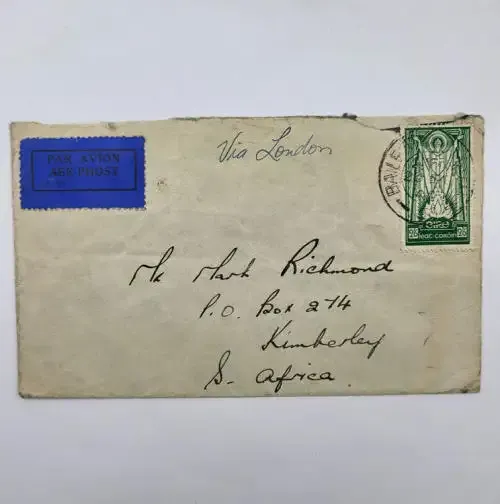 PAR AVION
AER-PHOST
Via London
BAILE
éire
leat-coróin
2/6 2/6
Mr Mark Richmond
P.O. Box 274
Kimberley
S. Africa.